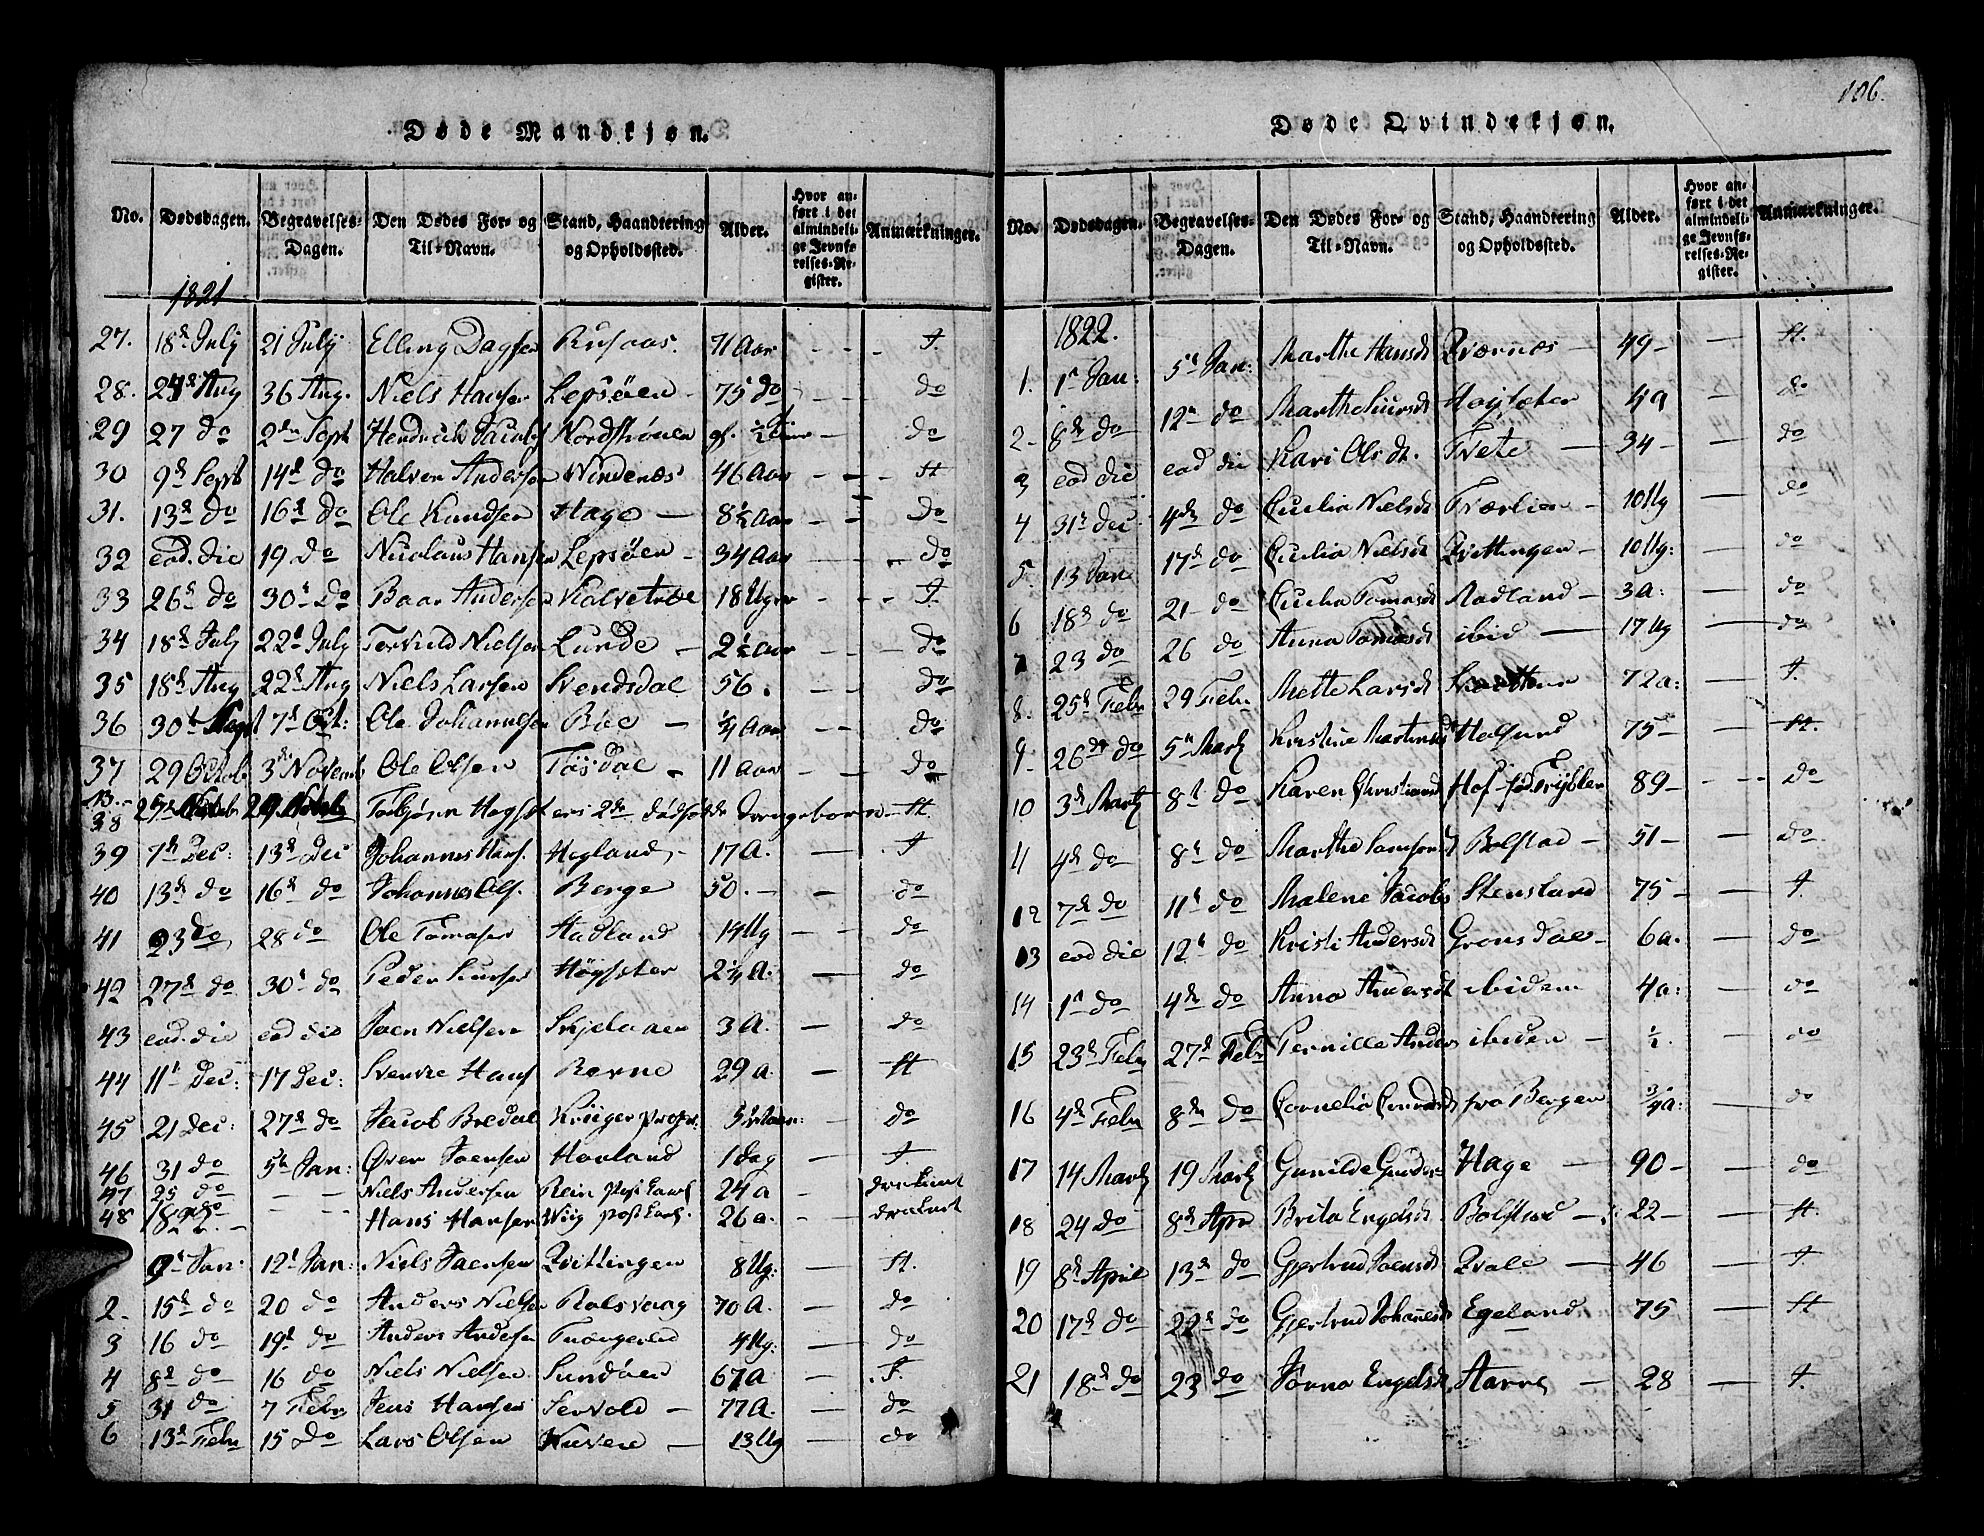 106.
Døde Mandkjøn.
No. Dødsdagen. Begravelses-Dagen. Den Dødes For- og Til-Navn. Stand, Haandtering og Opholdssted. Alder. Hvor anført i det almindelige Jevnførelses-Register. Anmærkninger.
1821
27. 18de July 21 July Elling Dagsen Rusaas. 71 Aar - - - F.
28. 24de Aug 36 Aug. Niels Hansen Lepsøen - 75 do - - do
29 27 do 2den Sept Hendrich Nordstrønen - do
30 9de Sept 14de do Halvor Andersen Windenæs 46 Aar - - - H
31. 13de do 16de do Ole Knudsen Hage - 8½ Aar - - do
32 eod. die 19 do Nicolaus Hansen Lepsøen - 34 Aar - - do
33 26de do 30te do Baar Andersen Kalvetræe 18 Uger - - - F.
34 18de July 22de July Torkild Nielsen Lunde - 2½ Aar - - - do
35 18de Aug 22de Aug Niels Larsen Svendsdal 56. - - do
36 30te 7de Oct: Ole Johannesen Røe - ¼ Aar - - do
37 29 Octob 3die Novemb Ole Olsen Tøsdal - 11 Aar - - do
38 Torbjørn 2de dødfødde Drengebørn - H.
39 7de Dec: 13de Dec Johannes Hans. Hegland - 17 A. - F
40 13de do 16de do Johannes Ols. Berge 50. - - do
41 23 do 28 do Ole Tomasen Hadland 14 Ug - - do
42 27de do 30te do Peder Siursen Høysæter 2¼ A. - do
43 eod. die eod die Joen Nielsen Skjelaaen 3 A. - do
44 11te Dec: 17 Dec: Svenke Hans Røvne 29 a. - H
45 21 Dec: 27de do Jacob Bredal Krüger - do
46 31 do 5te Jan: Øven Joensen Havland 1 Dag - F.
47 25 do - - Niels Andersen Rein 24 a - druknet
48 18 do - - Hans Hansen Wiig 26 a. - druknet
9de Jan: 12te Jan: Niels Joensen Qvittingen 8 Ug: - H.
2. 15de do 20 do Anders Nielsen Rolsvaag 70 A. - do
3 16 do 19de do Anders Andersen Tvangerød 4 Ug: - do
4 8de do 16 do Niels Nielsen Sundøen 67 A - F.
5 31 do 7 Febr Jens Hansen Servold - 77 A. - do
6 13de Febr 15 do Lars Olsen Kuven - 13 Ug - do
Døde Qvindekjøn.
No. Dødsdagen. Begravelses-Dagen. Den Dødes For- og Til-Navn. Stand, Haandtering og Opholdssted. Alder. Hvor anført i det almindelige Jevnførelses-Register. Anmærkninger.
1822.
1. 1te Jan: 5te Jan: Marthe Hansd Qværnæs - 49 - - H.
2 - 8de do 12te do Marthe Siursd Høysæter 4 a - do
3 eod die eod die Kari Olsdt. Tvete - 34 - - do
4 31te Dec: 4de do Cicilia Nielsd Tværlien - 10 Ug - do
5. 13 Jan 17de do Cicilia Nielsd Qvittingen - 10 Ug: - do
6 18de do 21 - do Cicilia Tomasd Hadland - 3 a: - do
7 23 do 26 do Anna Tomasd ibid - 17 Ug - do
8. 25de Febr 29 Febr Mette Larsd 72 a: - F.
9 26de do 5te Martz Kristine Martinsd Halsund 75 - - H.
10 3de Martz 8de do Karen Christiansd Hof 89 - - do
11 4de do 8de do Marthe Samsons Bolstad - 51 - - do.
12 7de do 11te do Malene Jacobs Stensland 75 - - F.
13 eod die 12te do Kristi Andersd Gronsdal - 6 a. - do
14 1te do 4de do Anna Andersd ibidem 4 a: - do
15 23de Febr 27de Febr Pernille Anders ibidem - ½. - do
16 4de Febr 8de do Cornelia fra Bergen ¾ a: - do
17 14 Martz 19 Martz Gunilde Guders: Hage - 90 - do
18 24 do 8de Apr Brita Engelsd. Bolstad - 22 - - H.
19 8de April 13de do Gjertrud Joensd Qvale - 46 - F
20 17de do 22de do Gjertrud Johanesd Egeland 75 - H
21 18de do 23 do Jorna Engelsd. Aarre - 28 - F.